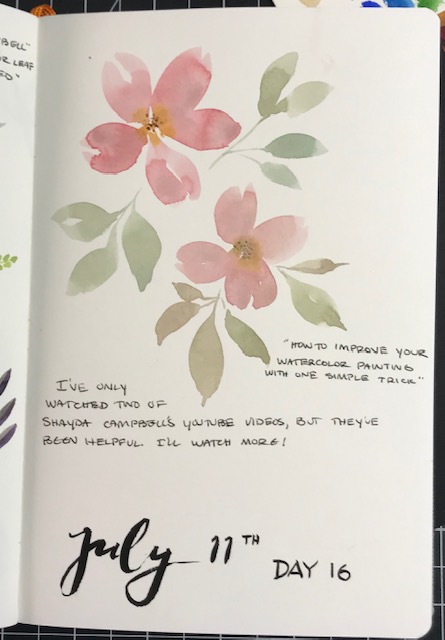 "HOW TO IMPROVE YOUR
WATERCOLOR PAINTING
WITH ONE SIMPLE TRICK"
I'VE ONLY
WATCHED TWO OF
SHAYDA CAMPBELL'S YOUTUBE VIDEOS, BUT THEY'VE
BEEN HELPFUL. I'LL WATCH MORE!
July 11TH
DAY 16